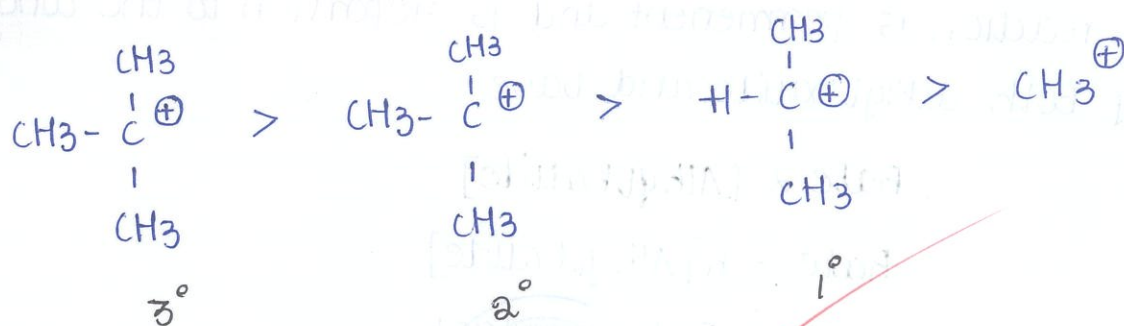 CH3 CH3 CH3
CH3 - C ⊕ > CH3 - C ⊕ > H - C ⊕ > CH3 ⊕
CH3 CH3 CH3
3° 2° 1°